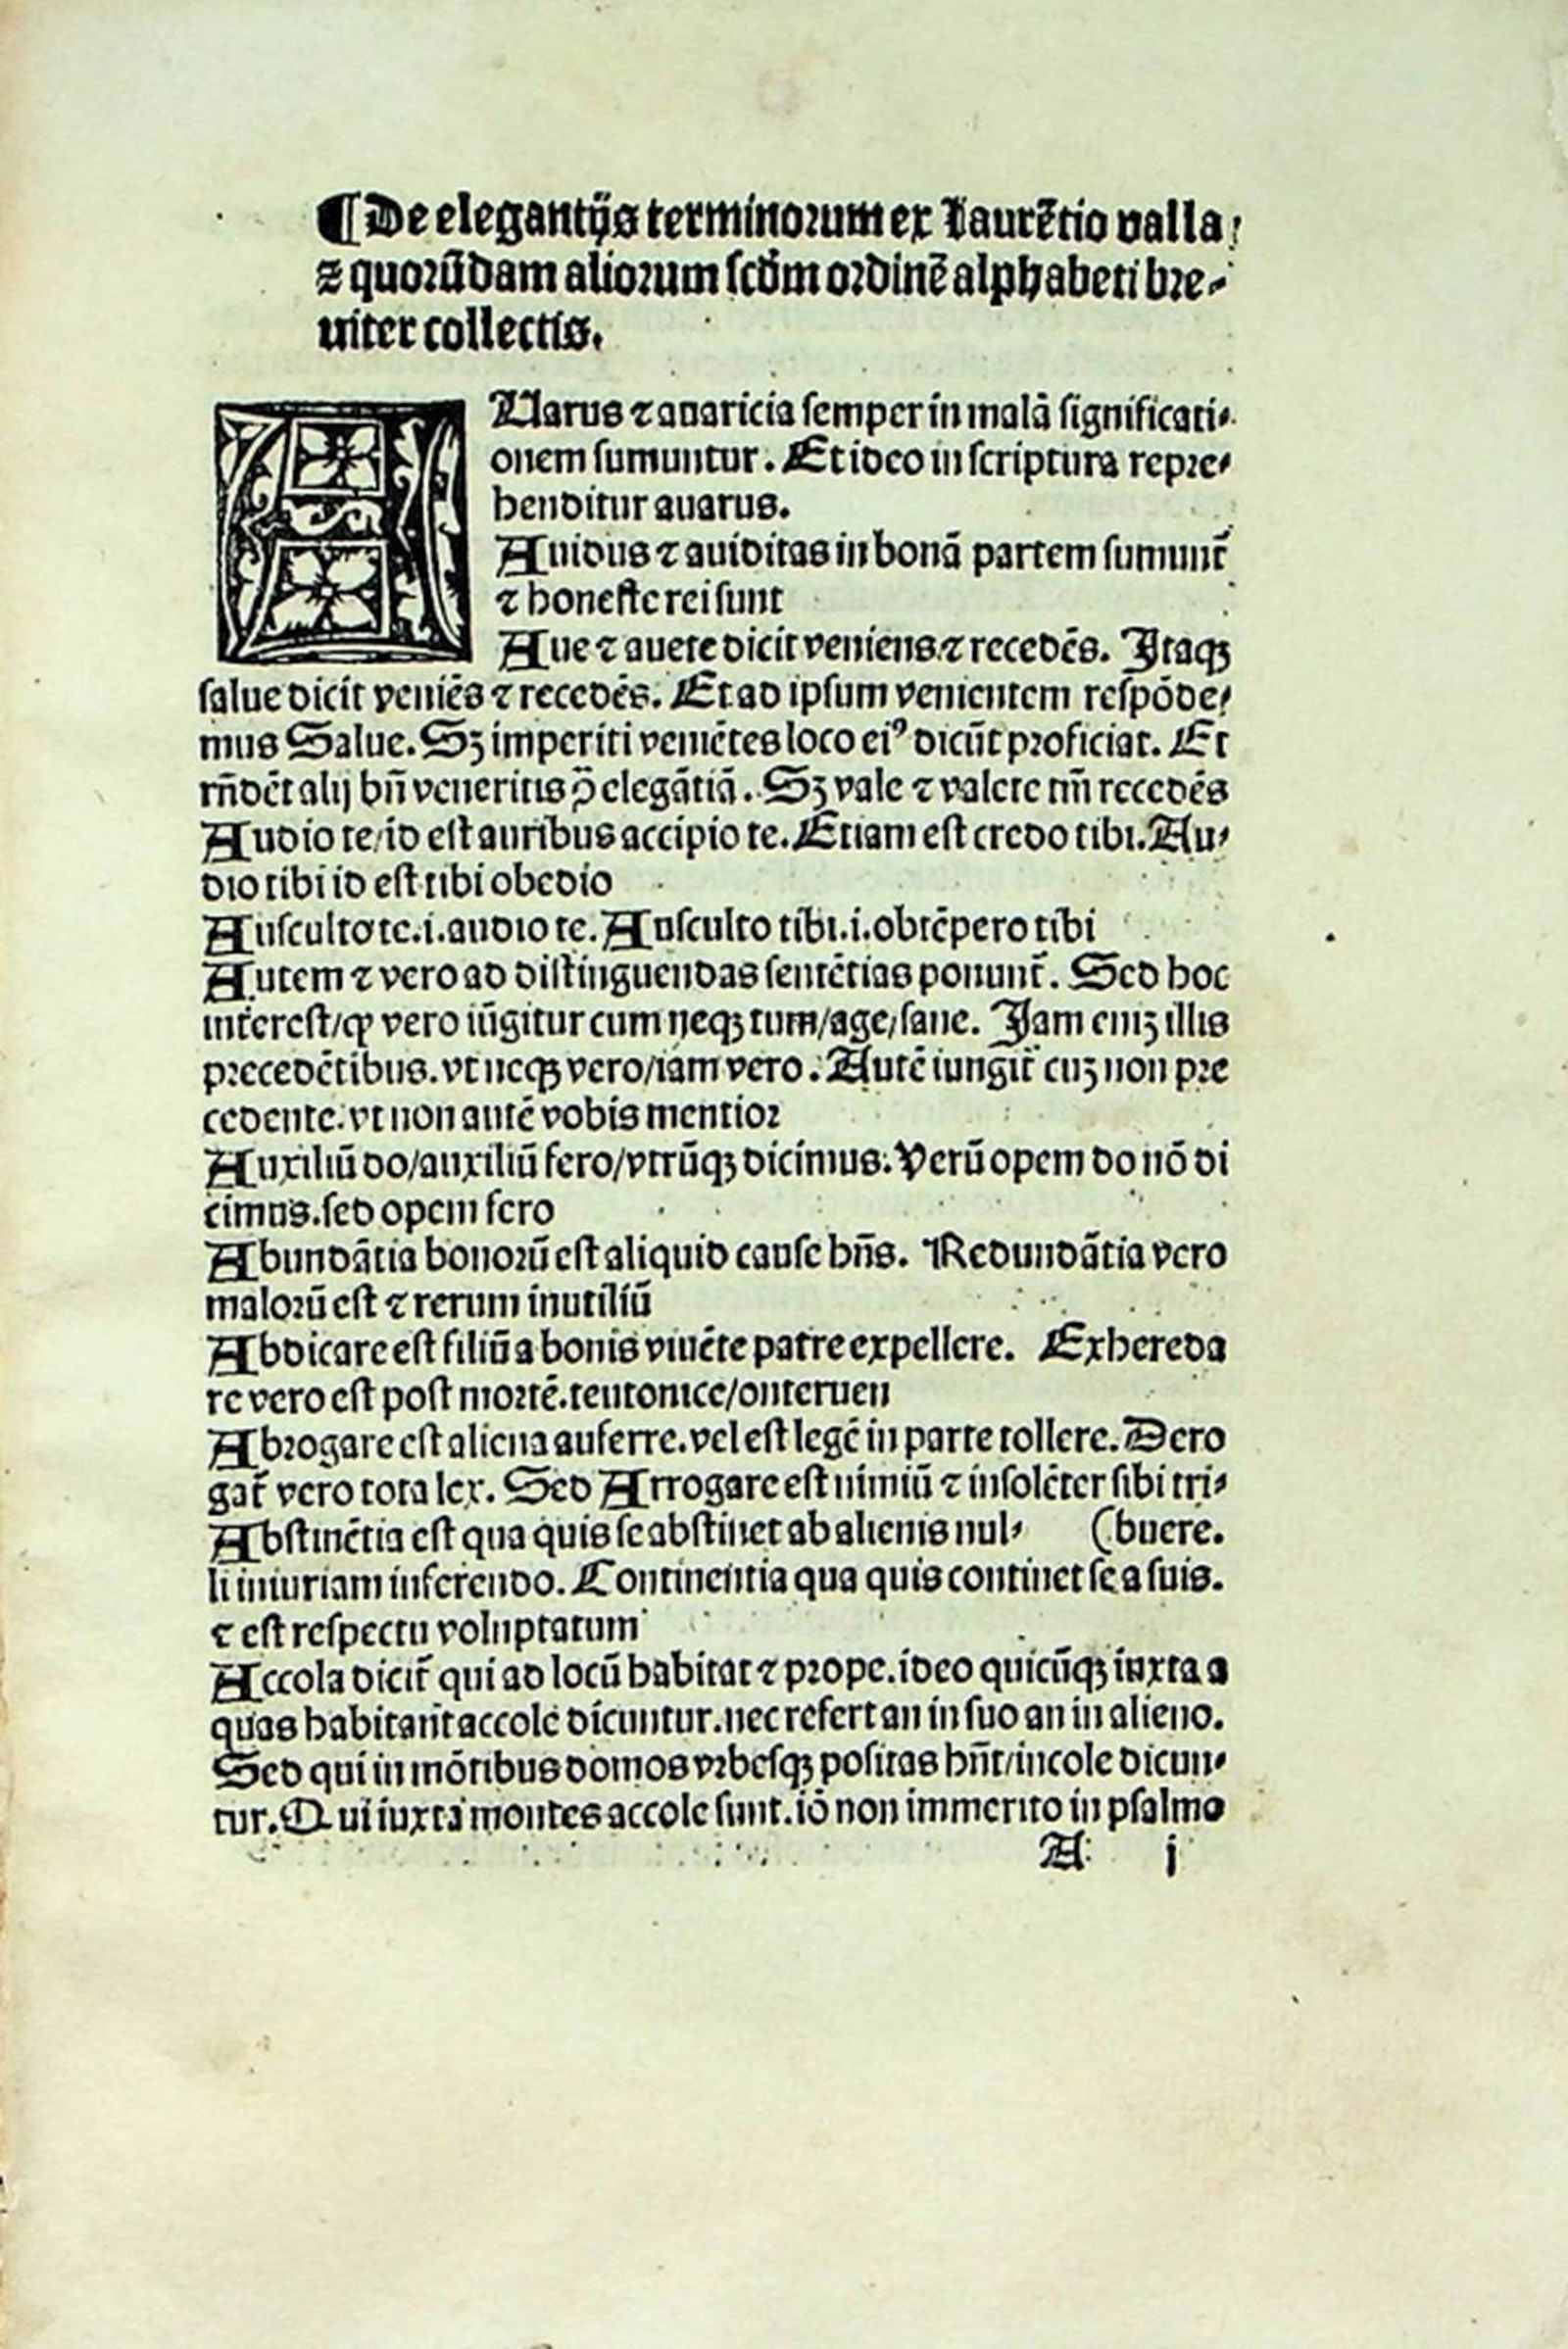 ¶De elegantijs terminorum ex Laurētio valla/
⁊ quorūdam aliorum scd̄m ordinē alphabeti bre-
uiter collectis.
AUarus ⁊ auaricia semper in malā significati-
onem sumuntur. Et ideo in scriptura repre-
henditur auarus.
Auidus ⁊ auiditas in bonā partem sumunt᷑
⁊ honeste rei sunt
Aue ⁊ auete dicit veniens ⁊ recedēs. Itaqꝫ
salue dicit veniēs ⁊ recedēs. Et ad ipsum venientem respōde-
mus Salue. Sꝫ imperiti veniētes loco eiꝰ dicūt proficiat. Et
rn̄dēt alij bn̄ veneritis ꝓ elegātiā. Sꝫ vale ⁊ valete tm̄ recedēs
Audio te/id est auribus accipio te. Etiam est credo tibi. Au-
dio tibi id est tibi obedio
Ausculto te.i.audio te. Ausculto tibi.i.obtēpero tibi
Autem ⁊ vero ad distinguendas sentētias ponunt᷑. Sed hoc
interest/ꝙ vero iūgitur cum neqꝫ tum/age/sane. Jam eniꝫ illis
precedētibus.vt neqꝫ vero/iam vero. Autē iungit᷑ cuꝫ non pre
cedente.vt non autē vobis mentior
Auxiliū do/auxiliū fero/vtrūqꝫ dicimus. Verū opem do nō di
cimus.sed opem fero
Abundātia bonorū est aliquid cause bn̄s. Redundātia vero
malorū est ⁊ rerum inutiliū
Abdicare est filiū a bonis viuēte patre expellere. Exhereda
re vero est post mortē.teutonice/onteruen
Abrogare est aliena auferre.vel est legē in parte tollere. Dero
gat᷑ vero tota lex. Sed Arrogare est nimiū ⁊ insolēter sibi tri-
Abstinētia est qua quis se abstinet ab alienis nul- (buere.
li iniuriam inferendo. Continentia qua quis continet se a suis.
⁊ est respectu voluptatum
Accola dicit᷑ qui ad locū habitat ⁊ prope.ideo quicūqꝫ iuxta a
quas habitant accole dicuntur.nec refert an in suo an in alieno.
Sed qui in mōtibus domos vrbesqꝫ positas hn̄t/incole dicun-
tur. Qui iuxta montes accole sunt.iō non immerito in psalmo
A j